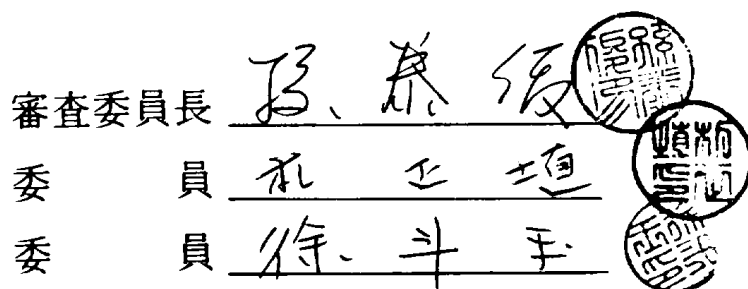 審査委員長 孫 泰 俊
委 員 正
委 員 徐 斗 玉